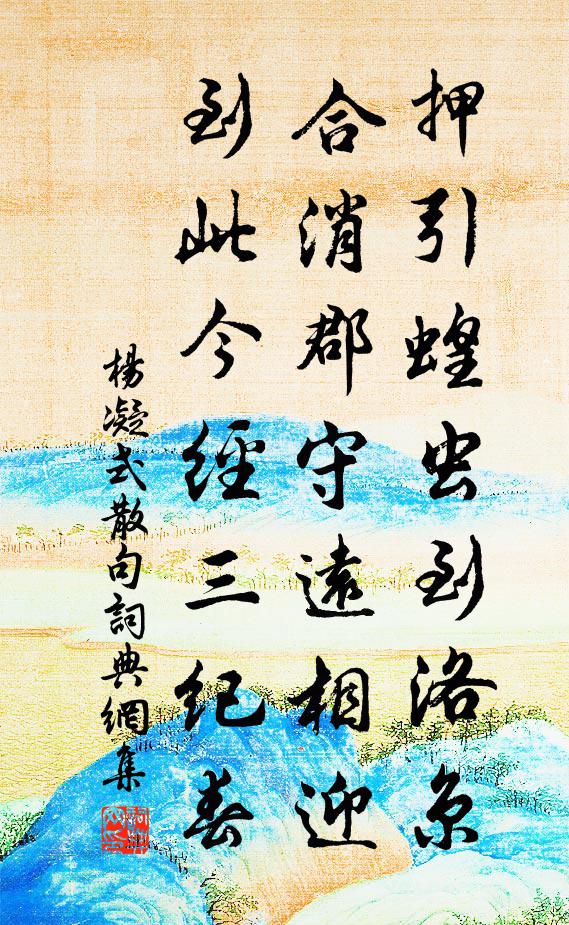 押引蝗虫到洛京
合消郡守遠相迎
到此今經三紀春
楊凝式散句詞典網集